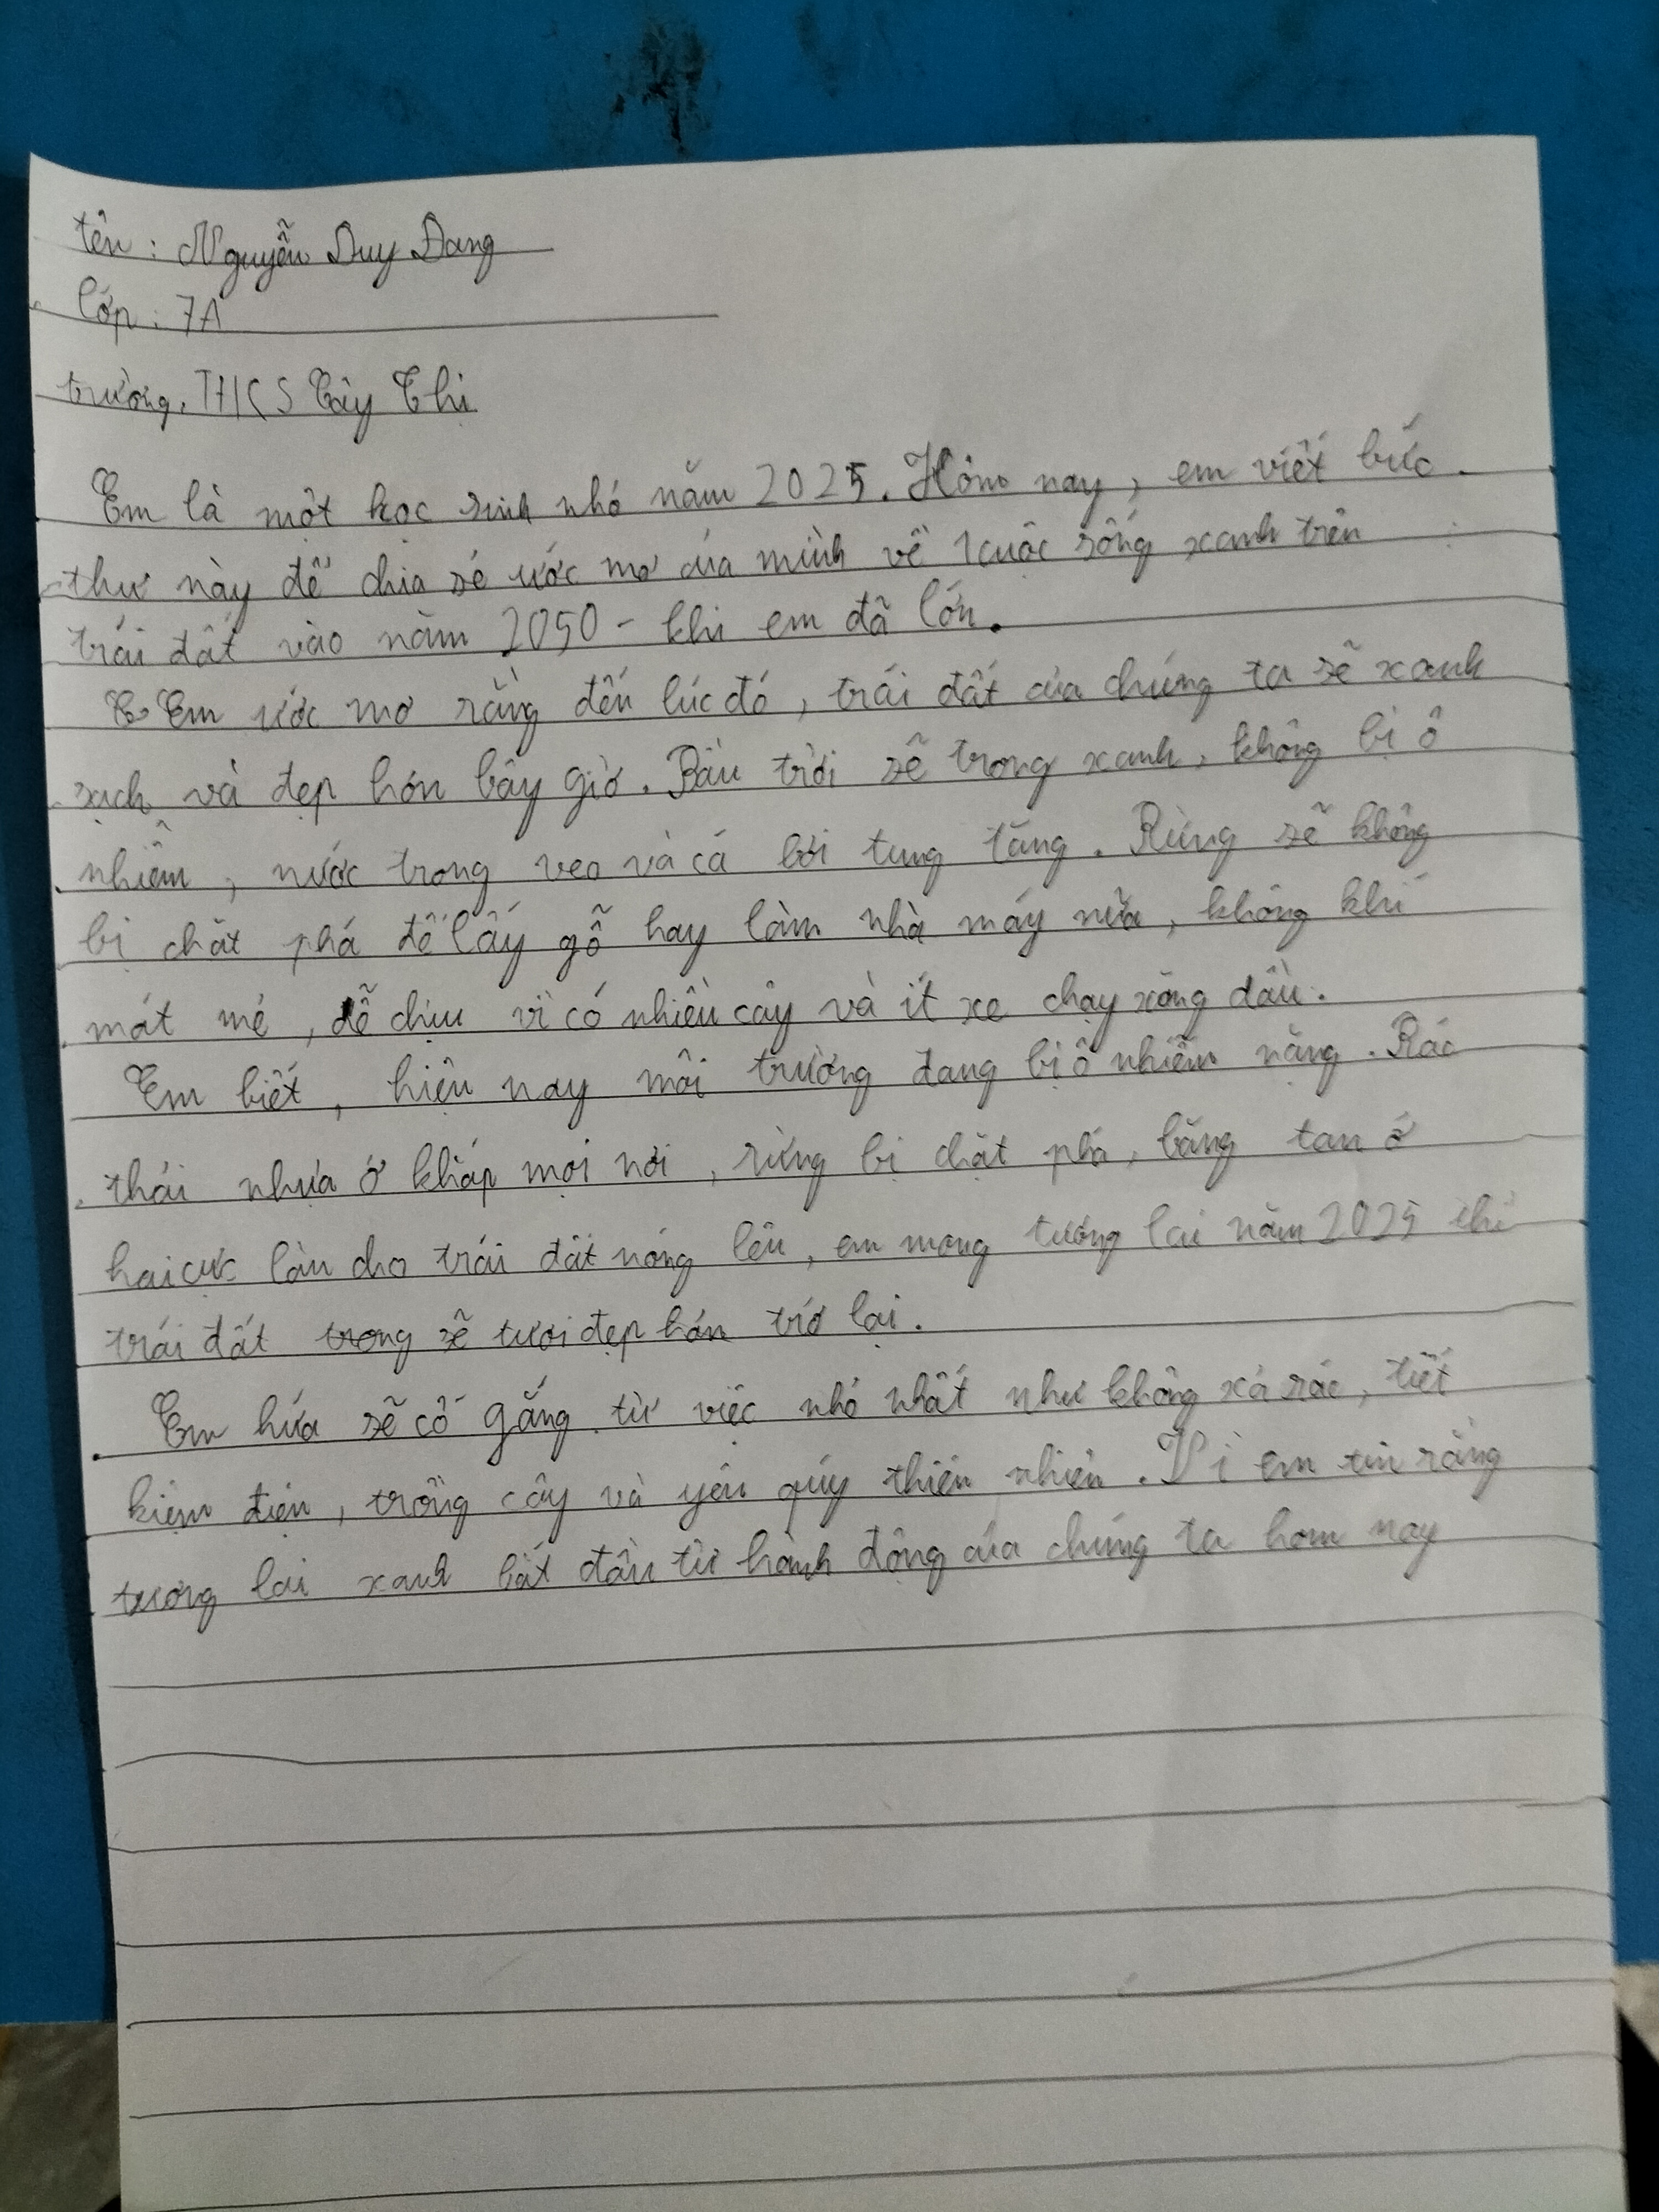 tên : Nguyễn Duy Đang
lớp : 7A
trường. THCS Cây Thị
Em là một học sinh nhỏ năm 2025. Hôm nay, em viết bức
thư này để chia sẻ ước mơ của mình về 1 cuộc sống xanh trên
trái đất vào năm 2050 - khi em đã lớn.
Em ước mơ rằng đến lúc đó, trái đất của chúng ta sẽ xanh
sạch và đẹp hơn bây giờ. Bầu trời sẽ trong xanh, không bị ô
nhiễm, nước trong veo và cá bơi tung tăng. Rừng sẽ không
bị chặt phá để lấy gỗ hay làm nhà máy nữa, không khí
mát mẻ, dễ chịu vì có nhiều cây và ít xe chạy xăng dầu.
Em biết, hiện nay môi trường đang bị ô nhiễm nặng. Rác
thải nhựa ở khắp mọi nơi, rừng bị chặt phá, băng tan ở
hai cực làm cho trái đất nóng lên, em mong tương lai năm 2025 thì
trái đất trong sẽ tươi đẹp hơn trở lại.
Em hứa sẽ cố gắng từ việc nhỏ nhất như không xả rác, tiết
kiệm điện, trồng cây và yêu quý thiên nhiên. Vì em tin rằng
tương lai xanh bắt đầu từ hành động của chúng ta hom nay